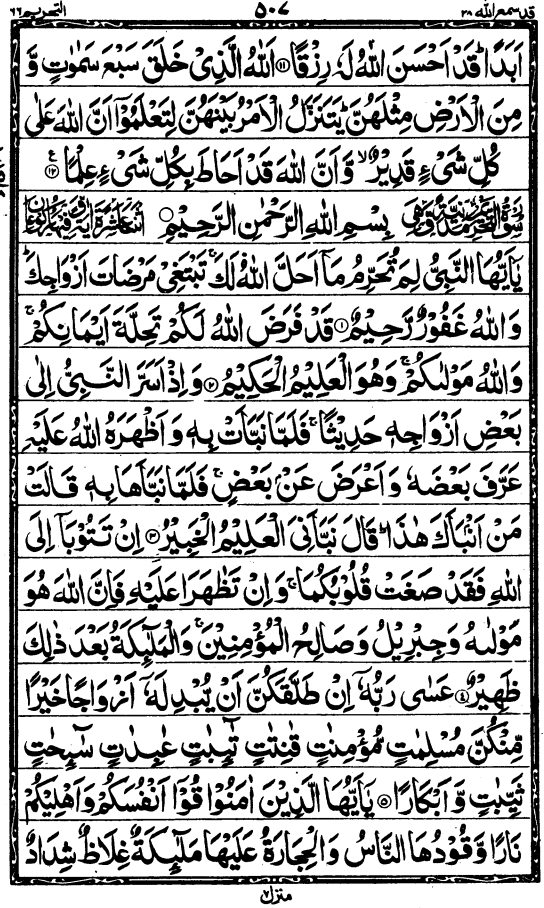 قد سمع الله ٢٨ ٥٠٧ التحریم ٦٦
اَبَدًا ؕ قَدْ اَحْسَنَ اللّٰهُ لَهٗ رِزْقًا ﴿۱۱﴾ اَللّٰهُ الَّذِیْ خَلَقَ سَبْعَ سَمٰوٰتٍ وَّ
مِنَ الْاَرْضِ مِثْلَهُنَّ ؕ یَتَنَزَّلُ الْاَمْرُ بَیْنَهُنَّ لِتَعْلَمُوْۤا اَنَّ اللّٰهَ عَلٰی
كُلِّ شَیْءٍ قَدِیْرٌ ۙ وَّ اَنَّ اللّٰهَ قَدْ اَحَاطَ بِكُلِّ شَیْءٍ عِلْمًا ﴿۱۲﴾ ع
بِسْمِ اللّٰهِ الرَّحْمٰنِ الرَّحِیْمِ
یٰۤاَیُّهَا النَّبِیُّ لِمَ تُحَرِّمُ مَاۤ اَحَلَّ اللّٰهُ لَكَ ۚ تَبْتَغِیْ مَرْضَاتَ اَزْوَاجِكَ ؕ
وَ اللّٰهُ غَفُوْرٌ رَّحِیْمٌ ﴿۱﴾ قَدْ فَرَضَ اللّٰهُ لَكُمْ تَحِلَّةَ اَیْمَانِكُمْ ۚ
وَ اللّٰهُ مَوْلٰىكُمْ ۚ وَ هُوَ الْعَلِیْمُ الْحَكِیْمُ ﴿۲﴾ وَ اِذْ اَسَرَّ النَّبِیُّ اِلٰی
بَعْضِ اَزْوَاجِهٖ حَدِیْثًا ۚ فَلَمَّا نَبَّاَتْ بِهٖ وَ اَظْهَرَهُ اللّٰهُ عَلَیْهِ
عَرَّفَ بَعْضَهٗ وَ اَعْرَضَ عَنْۢ بَعْضٍ ۚ فَلَمَّا نَبَّاَهَا بِهٖ قَالَتْ
مَنْ اَنْۢبَاَكَ هٰذَا ؕ قَالَ نَبَّاَنِیَ الْعَلِیْمُ الْخَبِیْرُ ﴿۳﴾ اِنْ تَتُوْبَاۤ اِلَی
اللّٰهِ فَقَدْ صَغَتْ قُلُوْبُكُمَا ۚ وَ اِنْ تَظٰهَرَا عَلَیْهِ فَاِنَّ اللّٰهَ هُوَ
مَوْلٰىهُ وَ جِبْرِیْلُ وَ صَالِحُ الْمُؤْمِنِیْنَ ۚ وَ الْمَلٰٓىِٕكَةُ بَعْدَ ذٰلِكَ
ظَهِیْرٌ ﴿۴﴾ عَسٰی رَبُّهٗۤ اِنْ طَلَّقَكُنَّ اَنْ یُّبْدِلَهٗۤ اَزْوَاجًا خَیْرًا
مِّنْكُنَّ مُسْلِمٰتٍ مُّؤْمِنٰتٍ قٰنِتٰتٍ تٰٓىِٕبٰتٍ عٰبِدٰتٍ سٰٓىِٕحٰتٍ
ثَیِّبٰتٍ وَّ اَبْكَارًا ﴿۵﴾ یٰۤاَیُّهَا الَّذِیْنَ اٰمَنُوْا قُوْۤا اَنْفُسَكُمْ وَ اَهْلِیْكُمْ
نَارًا وَّ قُوْدُهَا النَّاسُ وَ الْحِجَارَةُ عَلَیْهَا مَلٰٓىِٕكَةٌ غِلَاظٌ شِدَادٌ
منزل ۷